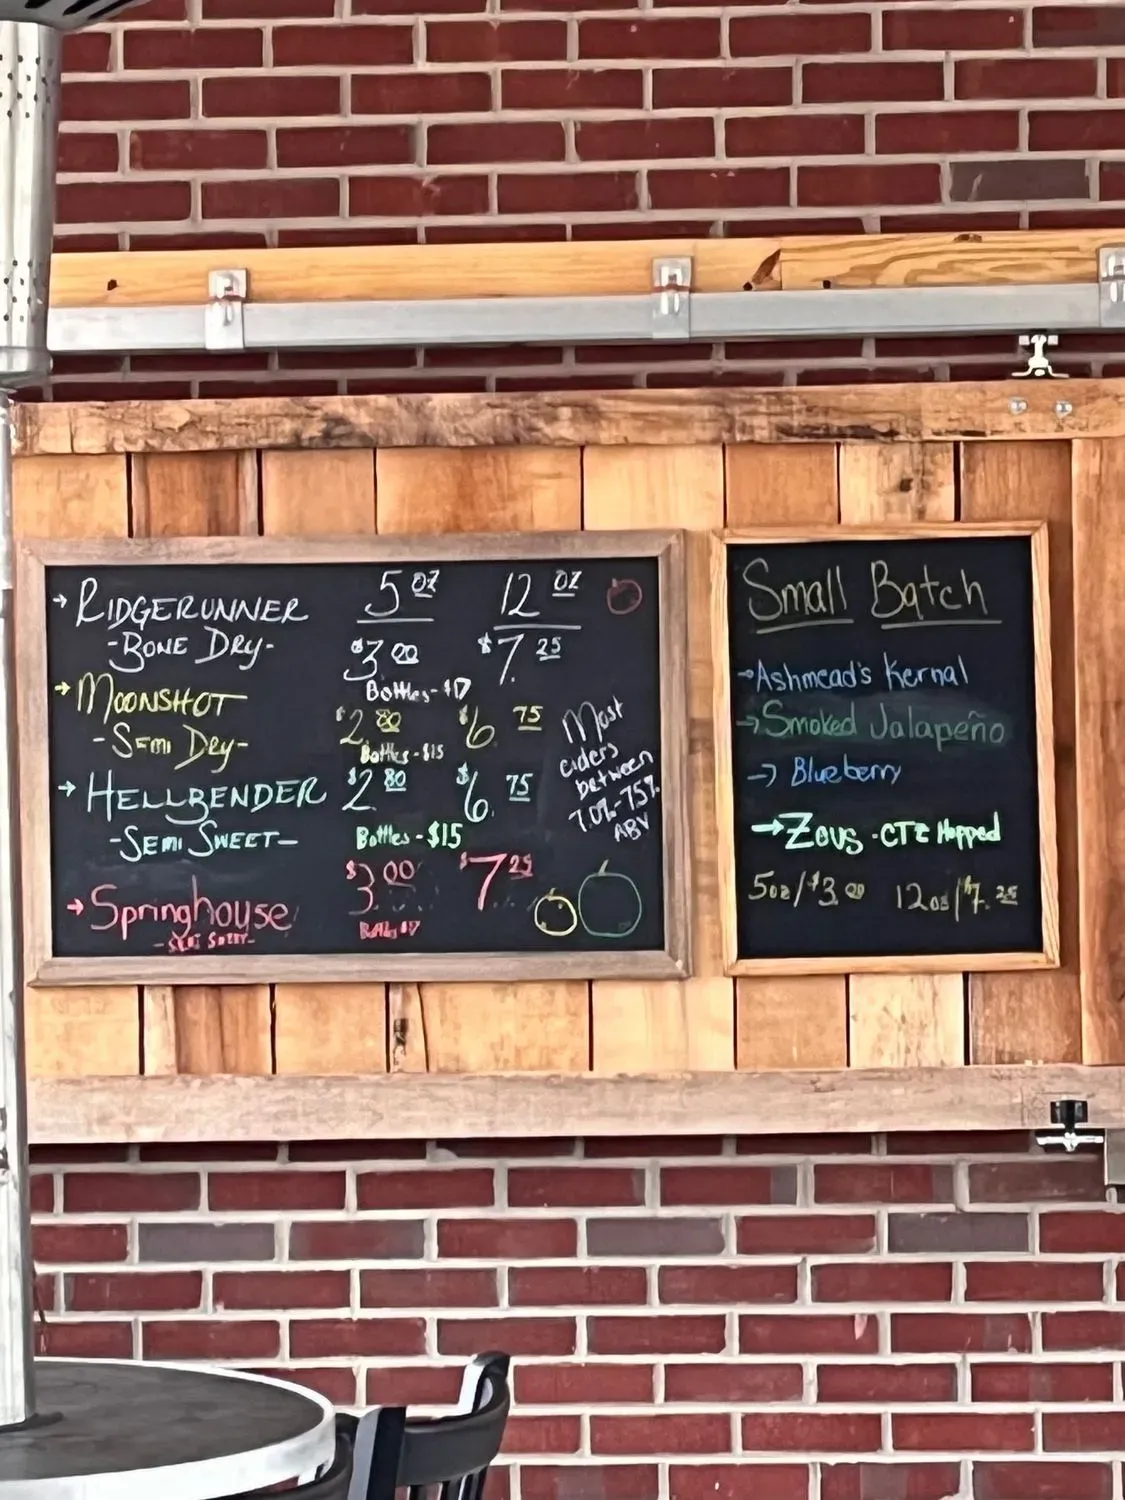 → RIDGERUNNER 5 OZ 12 OZ
-BONE DRY- $3.00 $7.25
Bottles - $17
→ MOONSHOT $2.80 $6.75
-SEMI DRY- Bottles - $15
→ HELLBENDER $2.80 $6.75
-SEMI SWEET- Bottles - $15
→ Springhouse $3.00 $7.25
Most
ciders
between
7.0%-7.5%
ABV
Small Batch
→ Ashmead's Kernal
→ Smoked Jalapeño
→ Blueberry
→ Zeus - CTZ Hopped
5oz/$3.00 12oz/$7.25